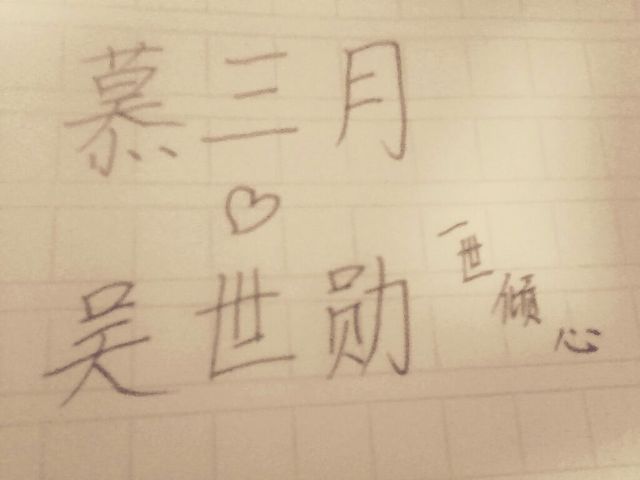 慕三月
♡
吴世勋
一世倾心